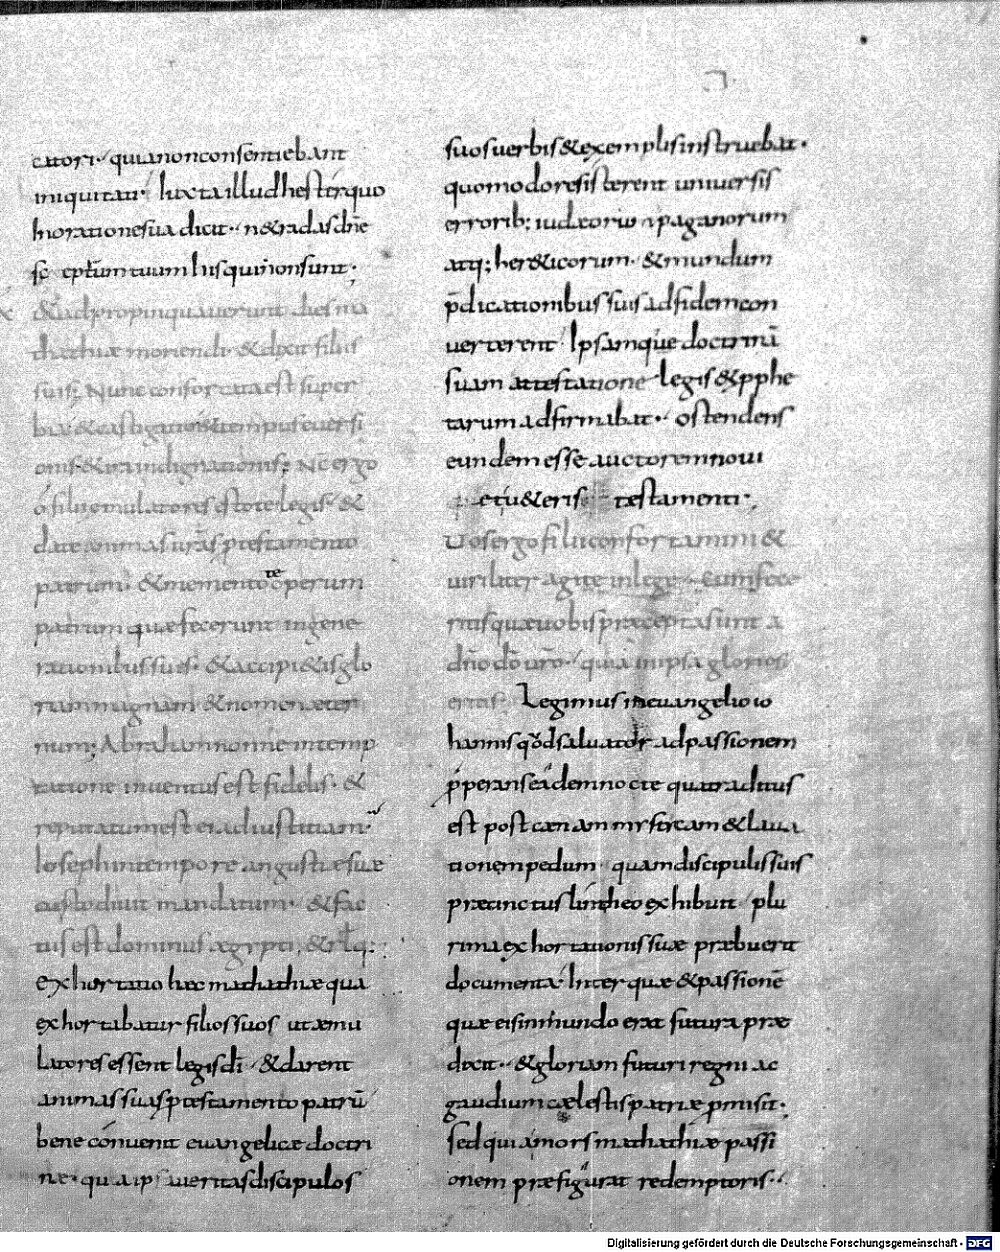 catori· quianonconsentiebant
iniquitati· Iuxtaillud hesterquo
Inorationesua dicit·· n&radasdn̄e
sceptrumtuum hisquinonsunt·
&adpropinquauerunt diesma
thathiæ moriendi &dixit filiis
suis; Nunc confortataest super
bia &castigatio &tempus euersi
onis &iraindignationis; Nc̄ ergo
ofilii emulatores estote legis· &
date animasuras ptestamento
patrum· &mementote operum
patrum quæfecerunt ingene
rationibussuis· &accipi&isglo
riammagnam &nomenæter
num; Abrahamnonne intemp
tatione inuentusest fidelis· &
reputatumest eiadiustitiam·
Iosephintempore angustiæsuæ
custodiuit mandatum· &fac
tusest dominus ægypti, &rlq:
exhortatio hæc mathathiæ qua
exhortabatur filiossuos utæmu
latoresessent legisdī· &darent
animassuasptestamento patrū
bene conuenit euangelicæ doctri
næ· quaipsaueritasdiscipulos
suosuerbis&exemplisinstruebat·
quomodoresisterent uniuersis
errorib; iudæorū &paganorum
atq; her&icorum· &mundum
p̄dicationibussuisadfidemcon
uerterent Ipsamque doctrinā
suam attestatione legis&pphe
tarumadfirmabat·· ostendens
eundemesse auctoremnoui
&ueteris testamenti·
Uosergofiliiconfortamini &
uiriliter agite inlege· cumfece
ritisquæuobispræceptasunt a
dn̄o dō ur̄o· quia inipsa gloriosi
eritis; Legimus ineuangelio io
hannisquodsaluator adpassionem
pperanseademnocte quatraditus
est postcænammysticam &laua
tionempedum quamdiscipulissuis
præcinctuslintheoexhibuit plu
rimaexhortationissuæ præbuerit
documenta· Inter quæ &passionē
quæeisinmundo erat futura præ
dixit·· &gloriam futuri regni ac
gaudiumcælestispatriæpmisit;
sedquiamors mathathiæ passi
onem præfigurat redemptoris··
Digitalisierung gefördert durch die Deutsche Forschungsgemeinschaft - DFG